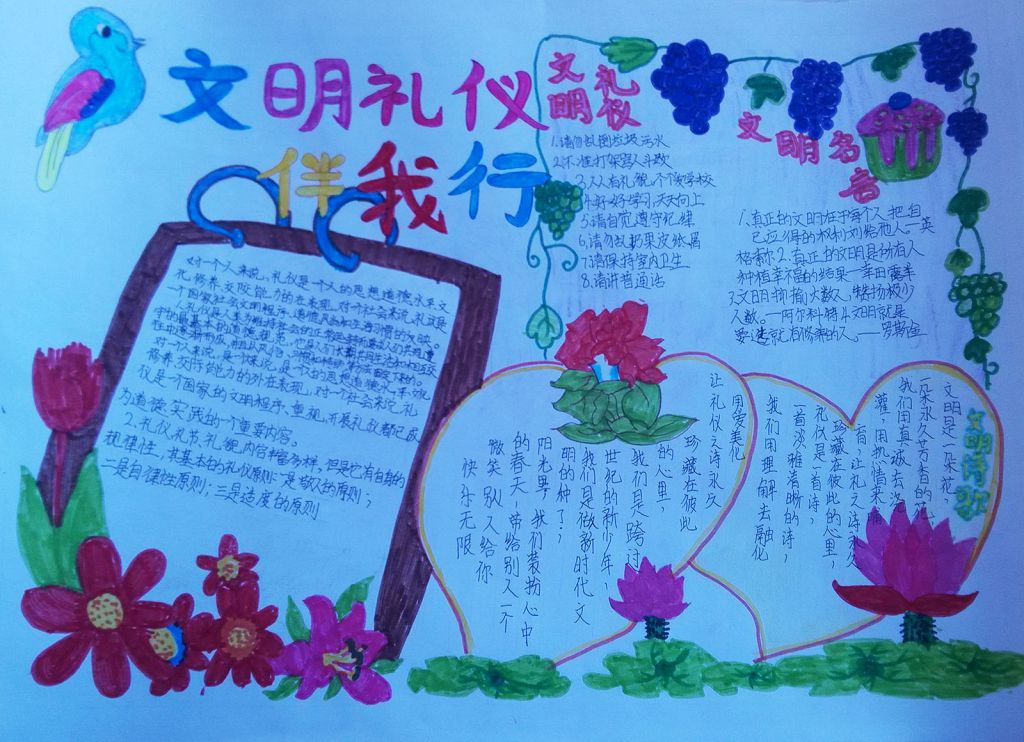 文明礼仪
伴我行
文明礼仪
1.请勿乱倒垃圾污水
2.不准打架骂人斗殴
3.人人有礼貌,个个爱学校
4.好好学习,天天向上
5.请自觉遵守纪律
6.请勿乱扔果皮纸屑
7.请保持室内卫生
8.请讲普通话
文明名言
1.真正的文明在于每个人把自
己应得的权利对给他人。—英
格索尔2.真正的文明是所有人
种植幸福的结果—幸田露半
3.文明抑揄大数人,
人数。—阿尔科特4.文明就是
要造就有修养的人。——罗斯金
对一个人来说,礼仪是一个人的思想道德水平文
化修养,交际能力的外在表现,对一个社会来说,礼仪是
一个国家社会文明程序、道德风尚和生活习惯的反映。
对一个人来说,是一个人的思想道德水平、文化
修养、交际能力的外在表现,对一个社会来说,礼
仪是一个国家的文明程序,重视、开展礼仪都已成
为道德实践的一个重要内容。
2、礼仪、礼节、礼貌内容丰富多样,但是它有自身的
规律性,其基本的礼仪原则:一是敬人的原则;
二是自律性原则;三是适度的原则
文明诗歌
文明是一朵花,
一朵永久芳香的花,
我们用真诚去浇
灌,用热情来哺
育,让礼之诗永久
珍藏在彼此的心里,
礼仪是一首诗,
一首淡雅清晰的诗,
我们用理解去融化
用爱美化
让礼仪之诗永久
珍藏在彼此
的心里,
我们是跨过
世纪的新少年,
我们是做新时代文
明的种子,
阳光里,我们装扮心中
的春天,带给别人一个
微笑,别人给你
快乐无限